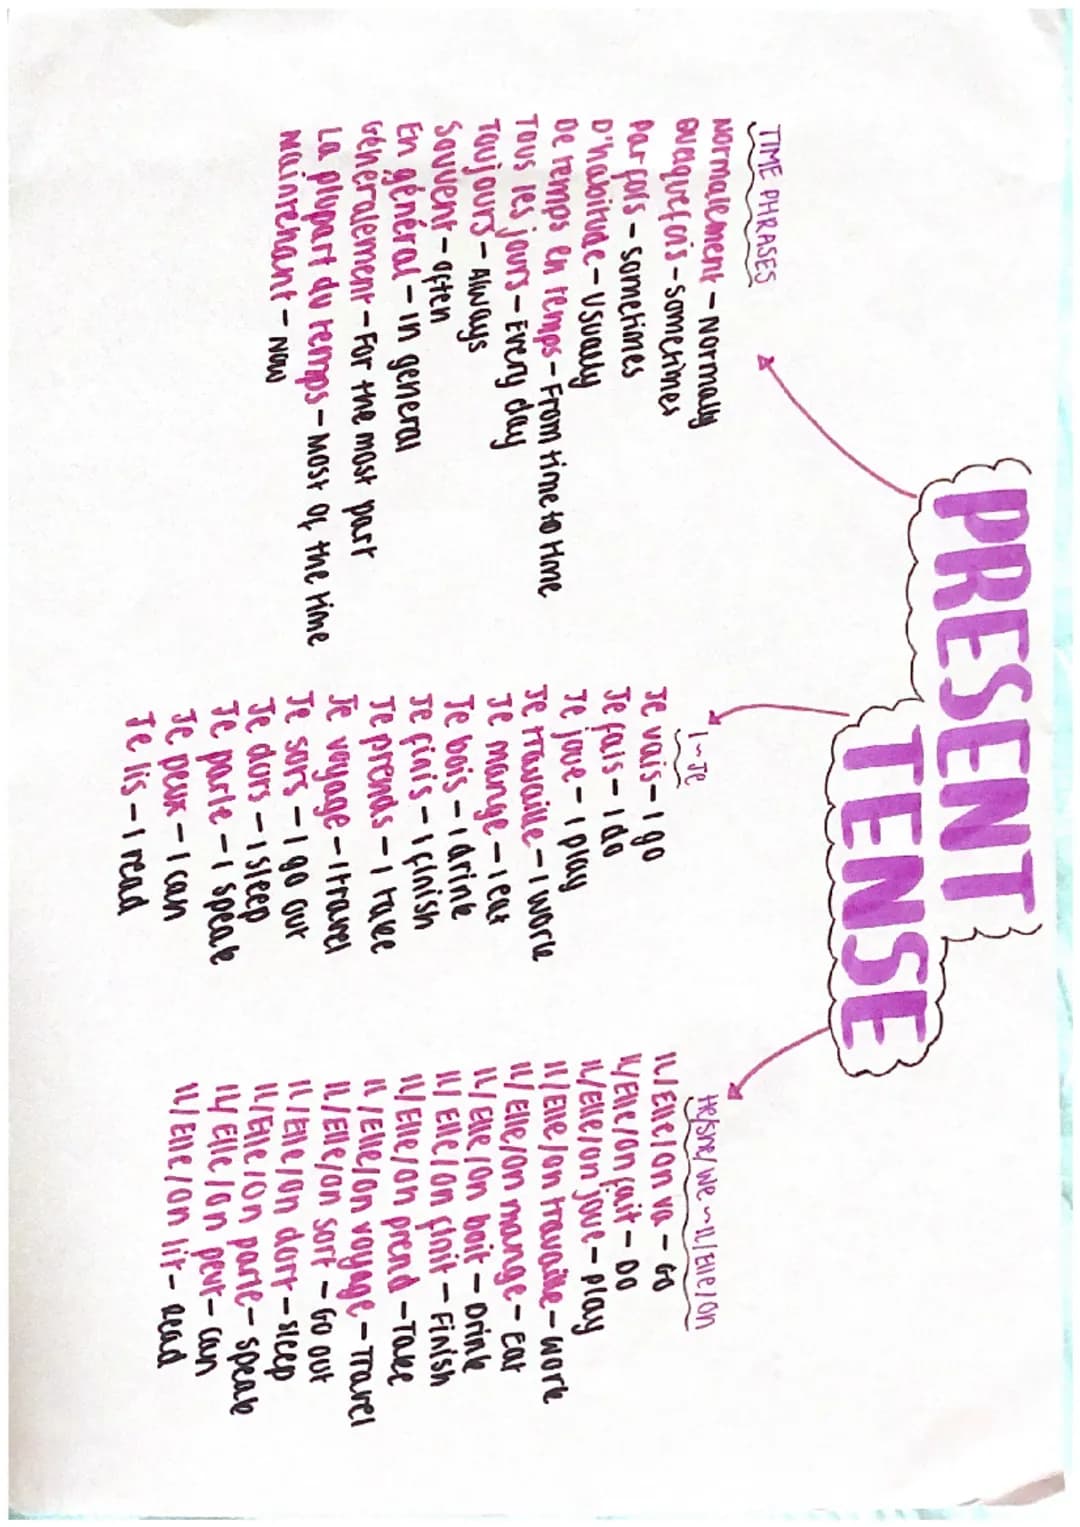 PRESENT
TENSE
TIME PHRASES
Normalement - Normally
Quelquefois - Sometimes
Parfois - Sometimes
D'habitude - Usually
De temps en temps - From time to time
Tous les jours - Every day
Toujours - Always
Souvent - often
En général - In general
Généralement - For the most part
La plupart du temps - Most of the time
Maintenant - Now
I ~ Je
Je vais - I go
Je fais - I do
Je joue - I play
Je travaille - I work
Je mange - I eat
Je bois - I drink
Je finis - I finish
Je prends - I take
Je voyage - I travel
Je sors - I go out
Je dors - I sleep
Je parle - I speak
Je peux - I can
Je lis - I read
He/She/We ~ IL/Elle/On
IL/Elle/on va - Go
IL/Elle/on fait - Do
IL/Elle/on joue - Play
IL/Elle/on travaille - Work
IL/Elle/on mange - Eat
IL/Elle/on boit - Drink
IL/Elle/on finit - Finish
IL/Elle/on prend - Take
IL/Elle/on voyage - Travel
IL/Elle/on sort - Go out
IL/Elle/on dort - Sleep
IL/Elle/on parle - Speak
IL/Elle/on peut - Can
IL/Elle/on lit - Read